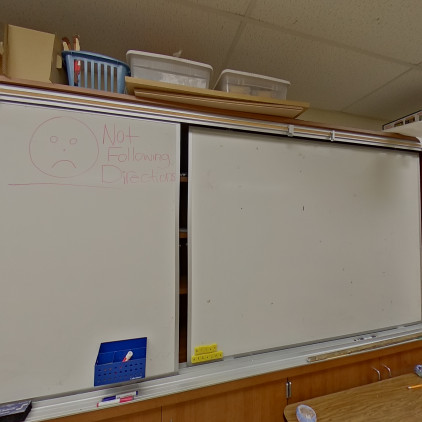 Not
Following
Directions